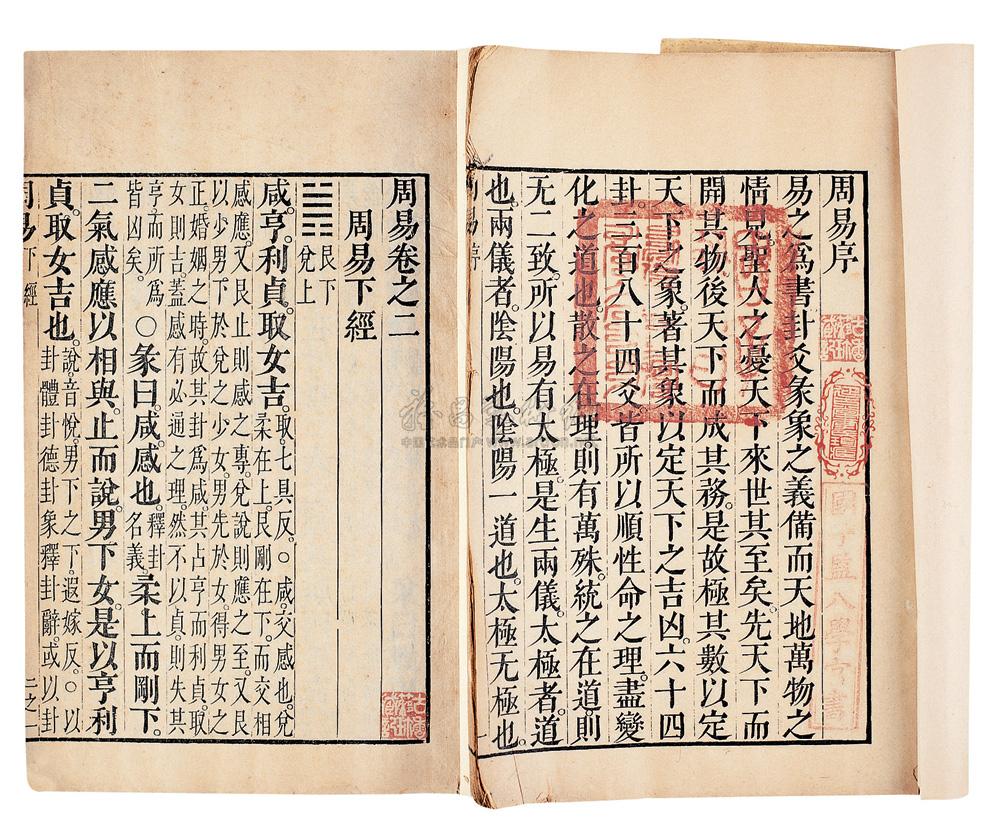 周易序
易之爲書卦爻彖象之義備而天地萬物之
情見。聖人之憂天下來世其至矣。先天下而
開其物。後天下而成其務。是故極其數以定
天下之象。著其象以定天下之吉凶。六十四
卦。三百八十四爻。皆所以順性命之理。盡變
化之道也。散之在理。則有萬殊。統之在道則
无二致。所以易有太極。是生兩儀。太極者。道
也。兩儀者。陰陽也。陰陽一道也。太極无極也。
周易序
一
國子監八學官書
周易卷之二
周易下經
艮下
兌上
咸。亨。利貞。取女吉。取。七具反。○咸。交感也。兌
柔在上。艮剛在下。而交相
感應。又艮止則感之專。兌說則應之至。又艮
以少男下於兌之少女。男先於女。得男女之
正。婚姻之時。故其卦爲咸。其占亨而利貞。取
女則吉。蓋感有必通之理。然不以貞。則失其
亨。而所爲
皆凶矣。
○彖曰。咸。感也。釋卦
名義
柔上而剛下。
二氣感應以相與。止而說。男下女。是以亨利
貞。取女吉也。說。音悅。男下之下。遐嫁反。○以
卦體卦德卦象釋卦辭。或以卦
周易下經
二之一